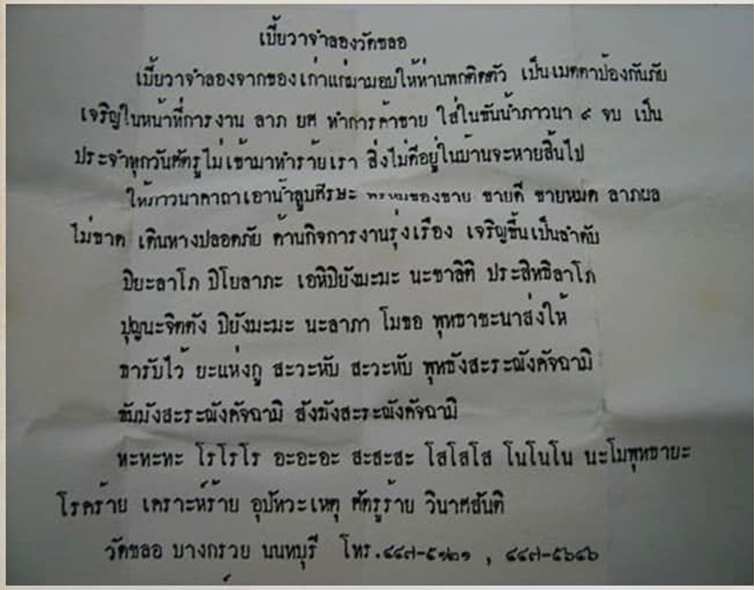 เบี้ยวาจำลองวัดชลอ
เบี้ยวาจำลองจากของเก่าแก่มามอบให้ท่านพกติดตัว เป็นเมตตาป้องกันภัย
เจริญในหน้าที่การงาน ลาภ ยศ ทำการค้าขาย ใส่ในขันน้ำภาวนา ๙ จบ เป็น
ประจำทุกวันศัตรูไม่เข้ามาทำร้ายเรา สิ่งไม่ดีอยู่ในบ้านจะหายสิ้นไป
ให้ภาวนาคาถาเอาน้ำลูบศีรษะ พรมของขาย ขายดี ขายหมด ลาภผล
ไม่ขาด เดินทางปลอดภัย ด้านกิจการงานรุ่งเรือง เจริญขึ้นเป็นลำดับ
ปิยะลาโภ ปิโยลาภะ เอหิปิยังมะมะ นะชาลิติ ประสิทธิลาโภ
ปุญนะจิตตัง ปิยังมะมะ นะลาภา โมขอ พุทธาชะนาส่งให้
ธารับไว้ ยะแห่งกู สะวะหับ สะวะหับ พุทธังสะระณังคัจฉามิ
ธัมมังสะระณังคัจฉามิ สังฆังสะระณังคัจฉามิ
หะหะหะ โรโรโร อะอะอะ สะสะสะ โสโสโส โนโนโน นะโมพุทธายะ
โรคร้าย เคราะห์ร้าย อุปัทวะเหตุ ศัตรูร้าย วินาศสันติ
วัดชลอ บางกรวย นนทบุรี โทร.๔๔๗-๕๑๒๑ , ๔๔๗-๕๖๔๖